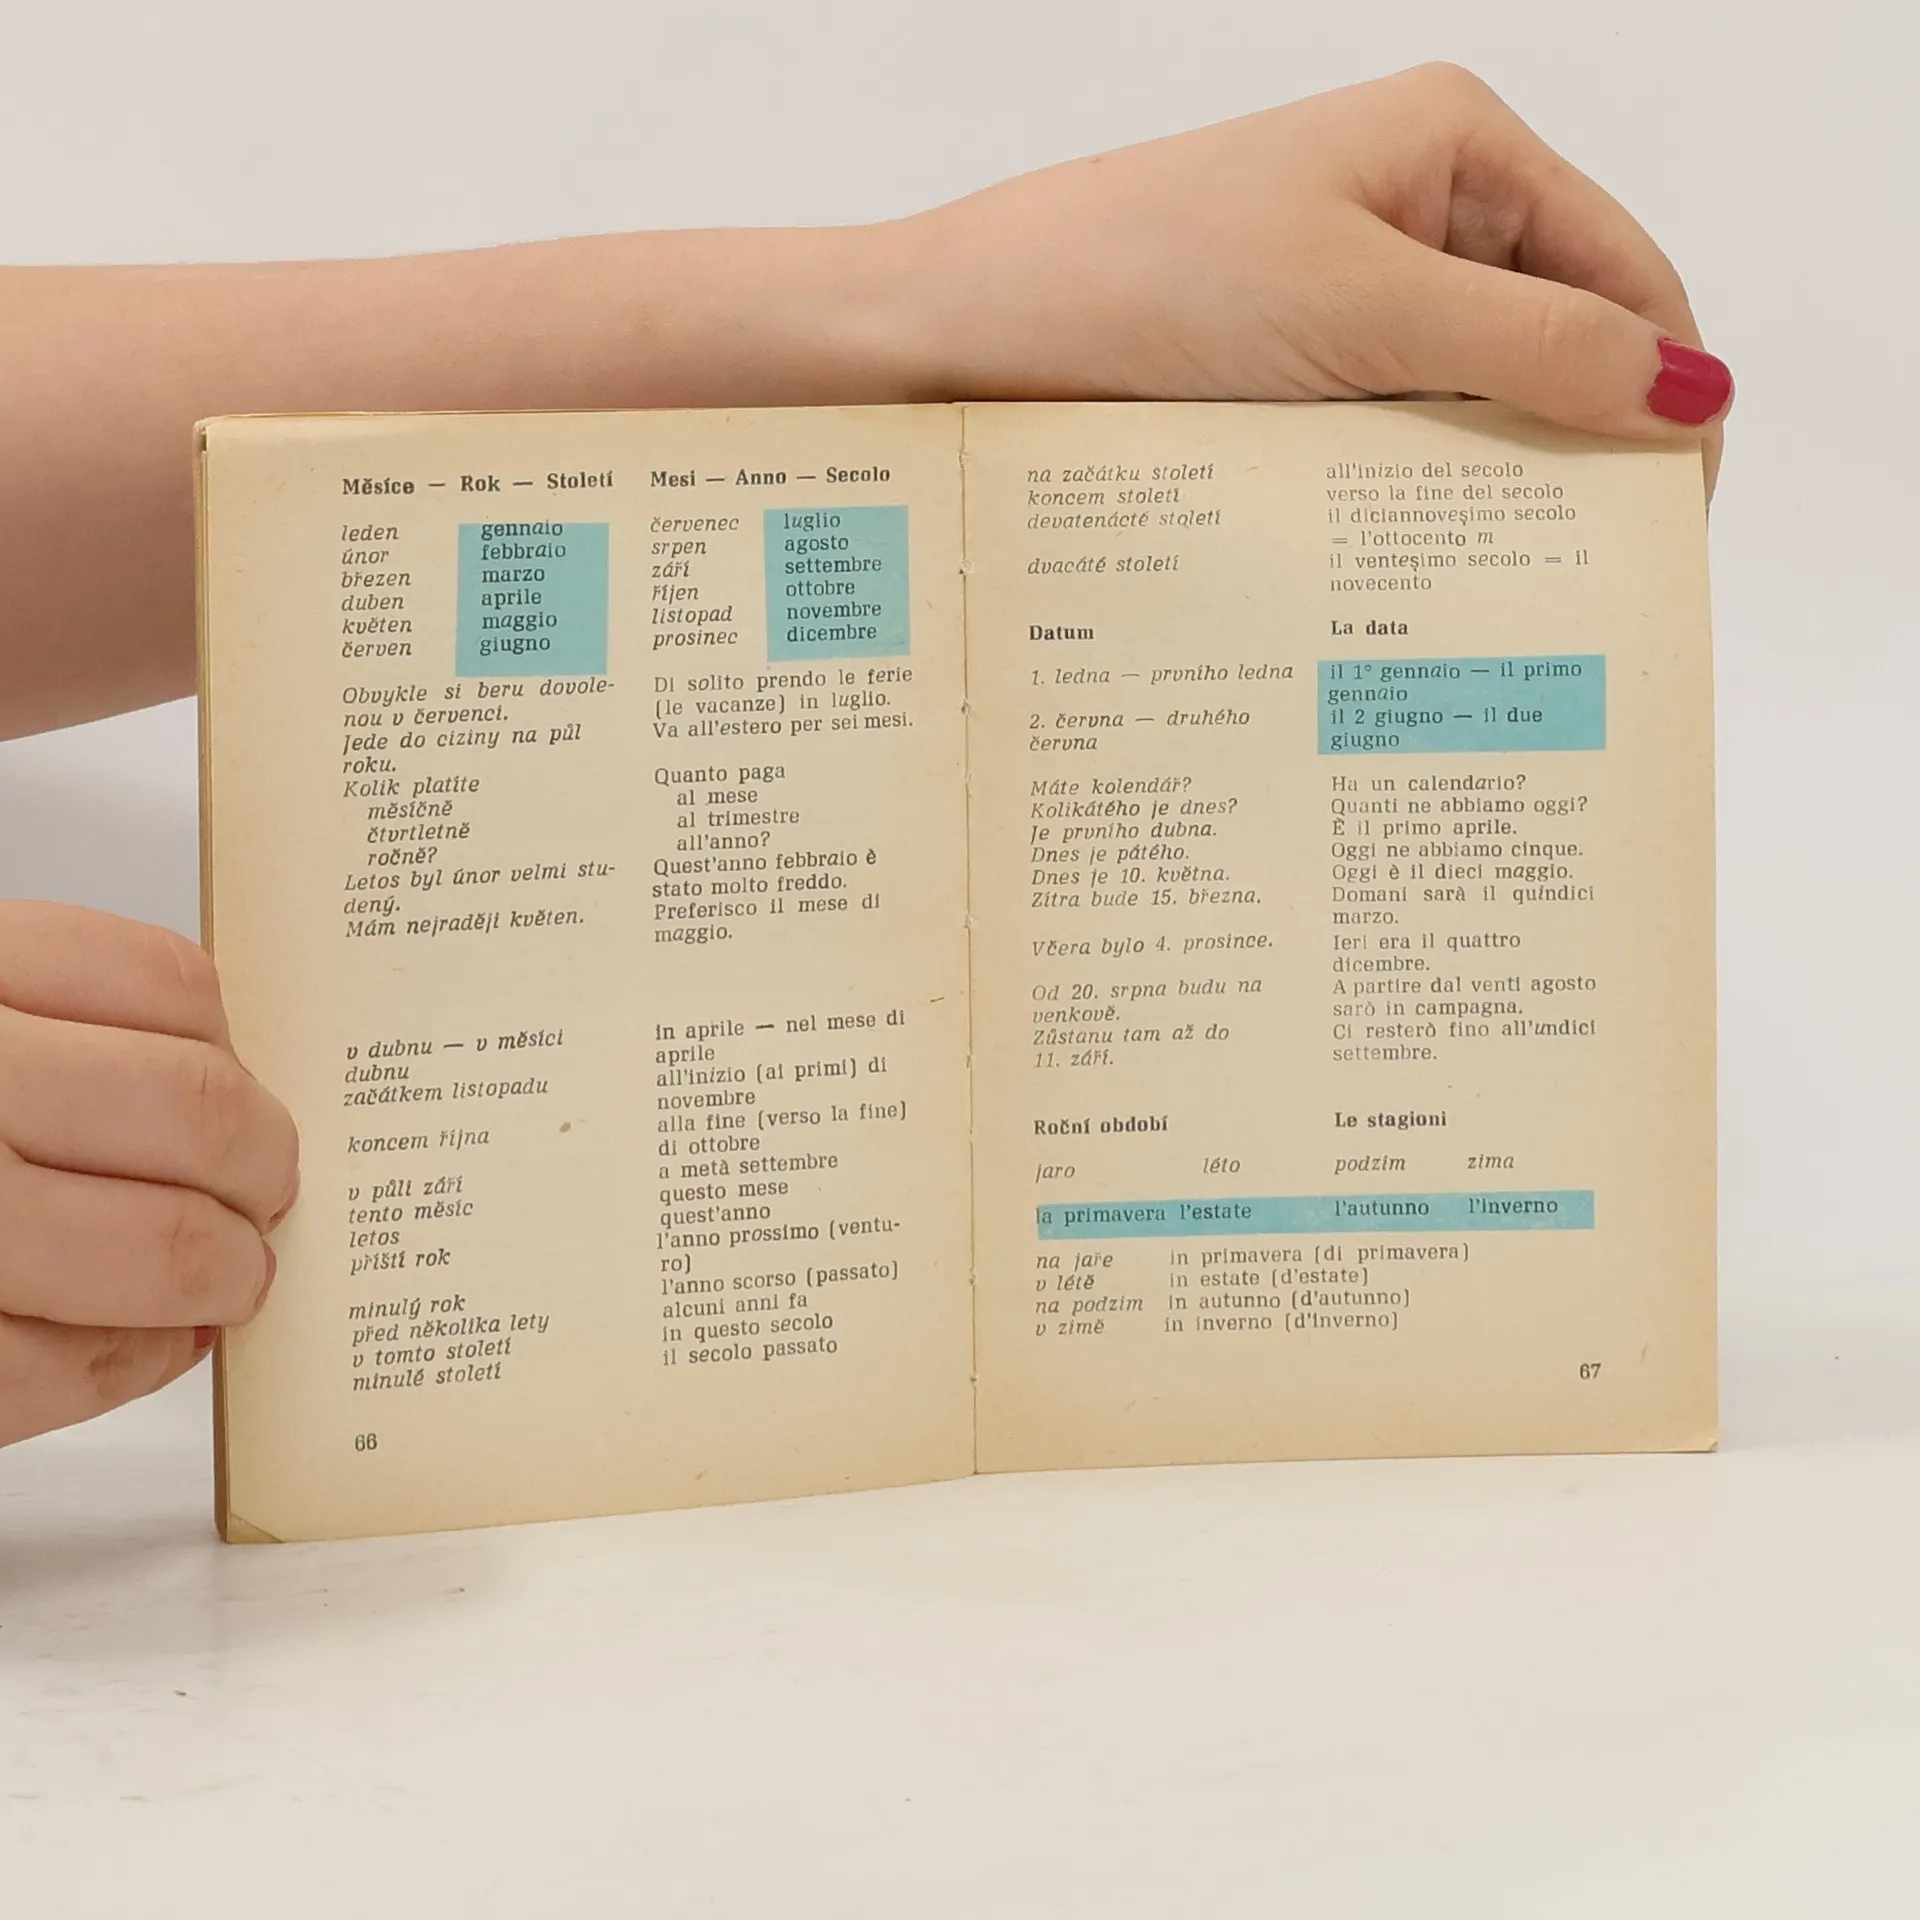 Měsíce — Rok — Století
leden
únor
březen
duben
květen
červen
gennaio
febbraio
marzo
aprile
maggio
giugno
Obvykle si beru dovole-
nou v červenci.
Jede do ciziny na půl
roku.
Kolik platíte
měsíčně
čtvrtletně
ročně?
Letos byl únor velmi stu-
dený.
Mám nejraději květen.
v dubnu — v měsíci
dubnu
začátkem listopadu
koncem října
v půli září
tento měsíc
letos
příští rok
minulý rok
před několika lety
v tomto století
minulé století
66
Mesi — Anno — Secolo
červenec
srpen
září
říjen
listopad
prosinec
luglio
agosto
settembre
ottobre
novembre
dicembre
Di solito prendo le ferie
(le vacanze) in luglio.
Va all'estero per sei mesi.
Quanto paga
al mese
al trimestre
all'anno?
Quest'anno febbraio è
stato molto freddo.
Preferisco il mese di
maggio.
in aprile — nel mese di
aprile
all'inizio (ai primi) di
novembre
alla fine (verso la fine)
di ottobre
a metà settembre
questo mese
quest'anno
l'anno prossimo (ventu-
ro)
l'anno scorso (passato)
alcuni anni fa
in questo secolo
il secolo passato
na začátku století
koncem století
devatenácté století
dvacáté století
all'inizio del secolo
verso la fine del secolo
il diciannoveşimo secolo
= l'ottocento m
il venteşimo secolo = il
novecento
Datum
1. ledna — prvního ledna
2. června — druhého
června
Máte kolendář?
Kolikátého je dnes?
Je prvního dubna.
Dnes je pátého.
Dnes je 10. května.
Zítra bude 15. března.
Včera bylo 4. prosince.
Od 20. srpna budu na
venkově.
Zůstanu tam až do
11. září.
La data
il 1° gennaio — il primo
gennaio
il 2 giugno — il due
giugno
Ha un calendario?
Quanti ne abbiamo oggi?
È il primo aprile.
Oggi ne abbiamo cinque.
Oggi è il dieci maggio.
Domani sarà il quindici
marzo.
Ieri era il quattro
dicembre.
A partire dal venti agosto
sarò in campagna.
Ci resterò fino all'undici
settembre.
Roční období
Le stagioni
jaro léto podzim zima
la primavera l'estate l'autunno l'inverno
na jaře in primavera (di primavera)
v létě in estate (d'estate)
na podzim in autunno (d'autunno)
v zimě in inverno (d'inverno)
67